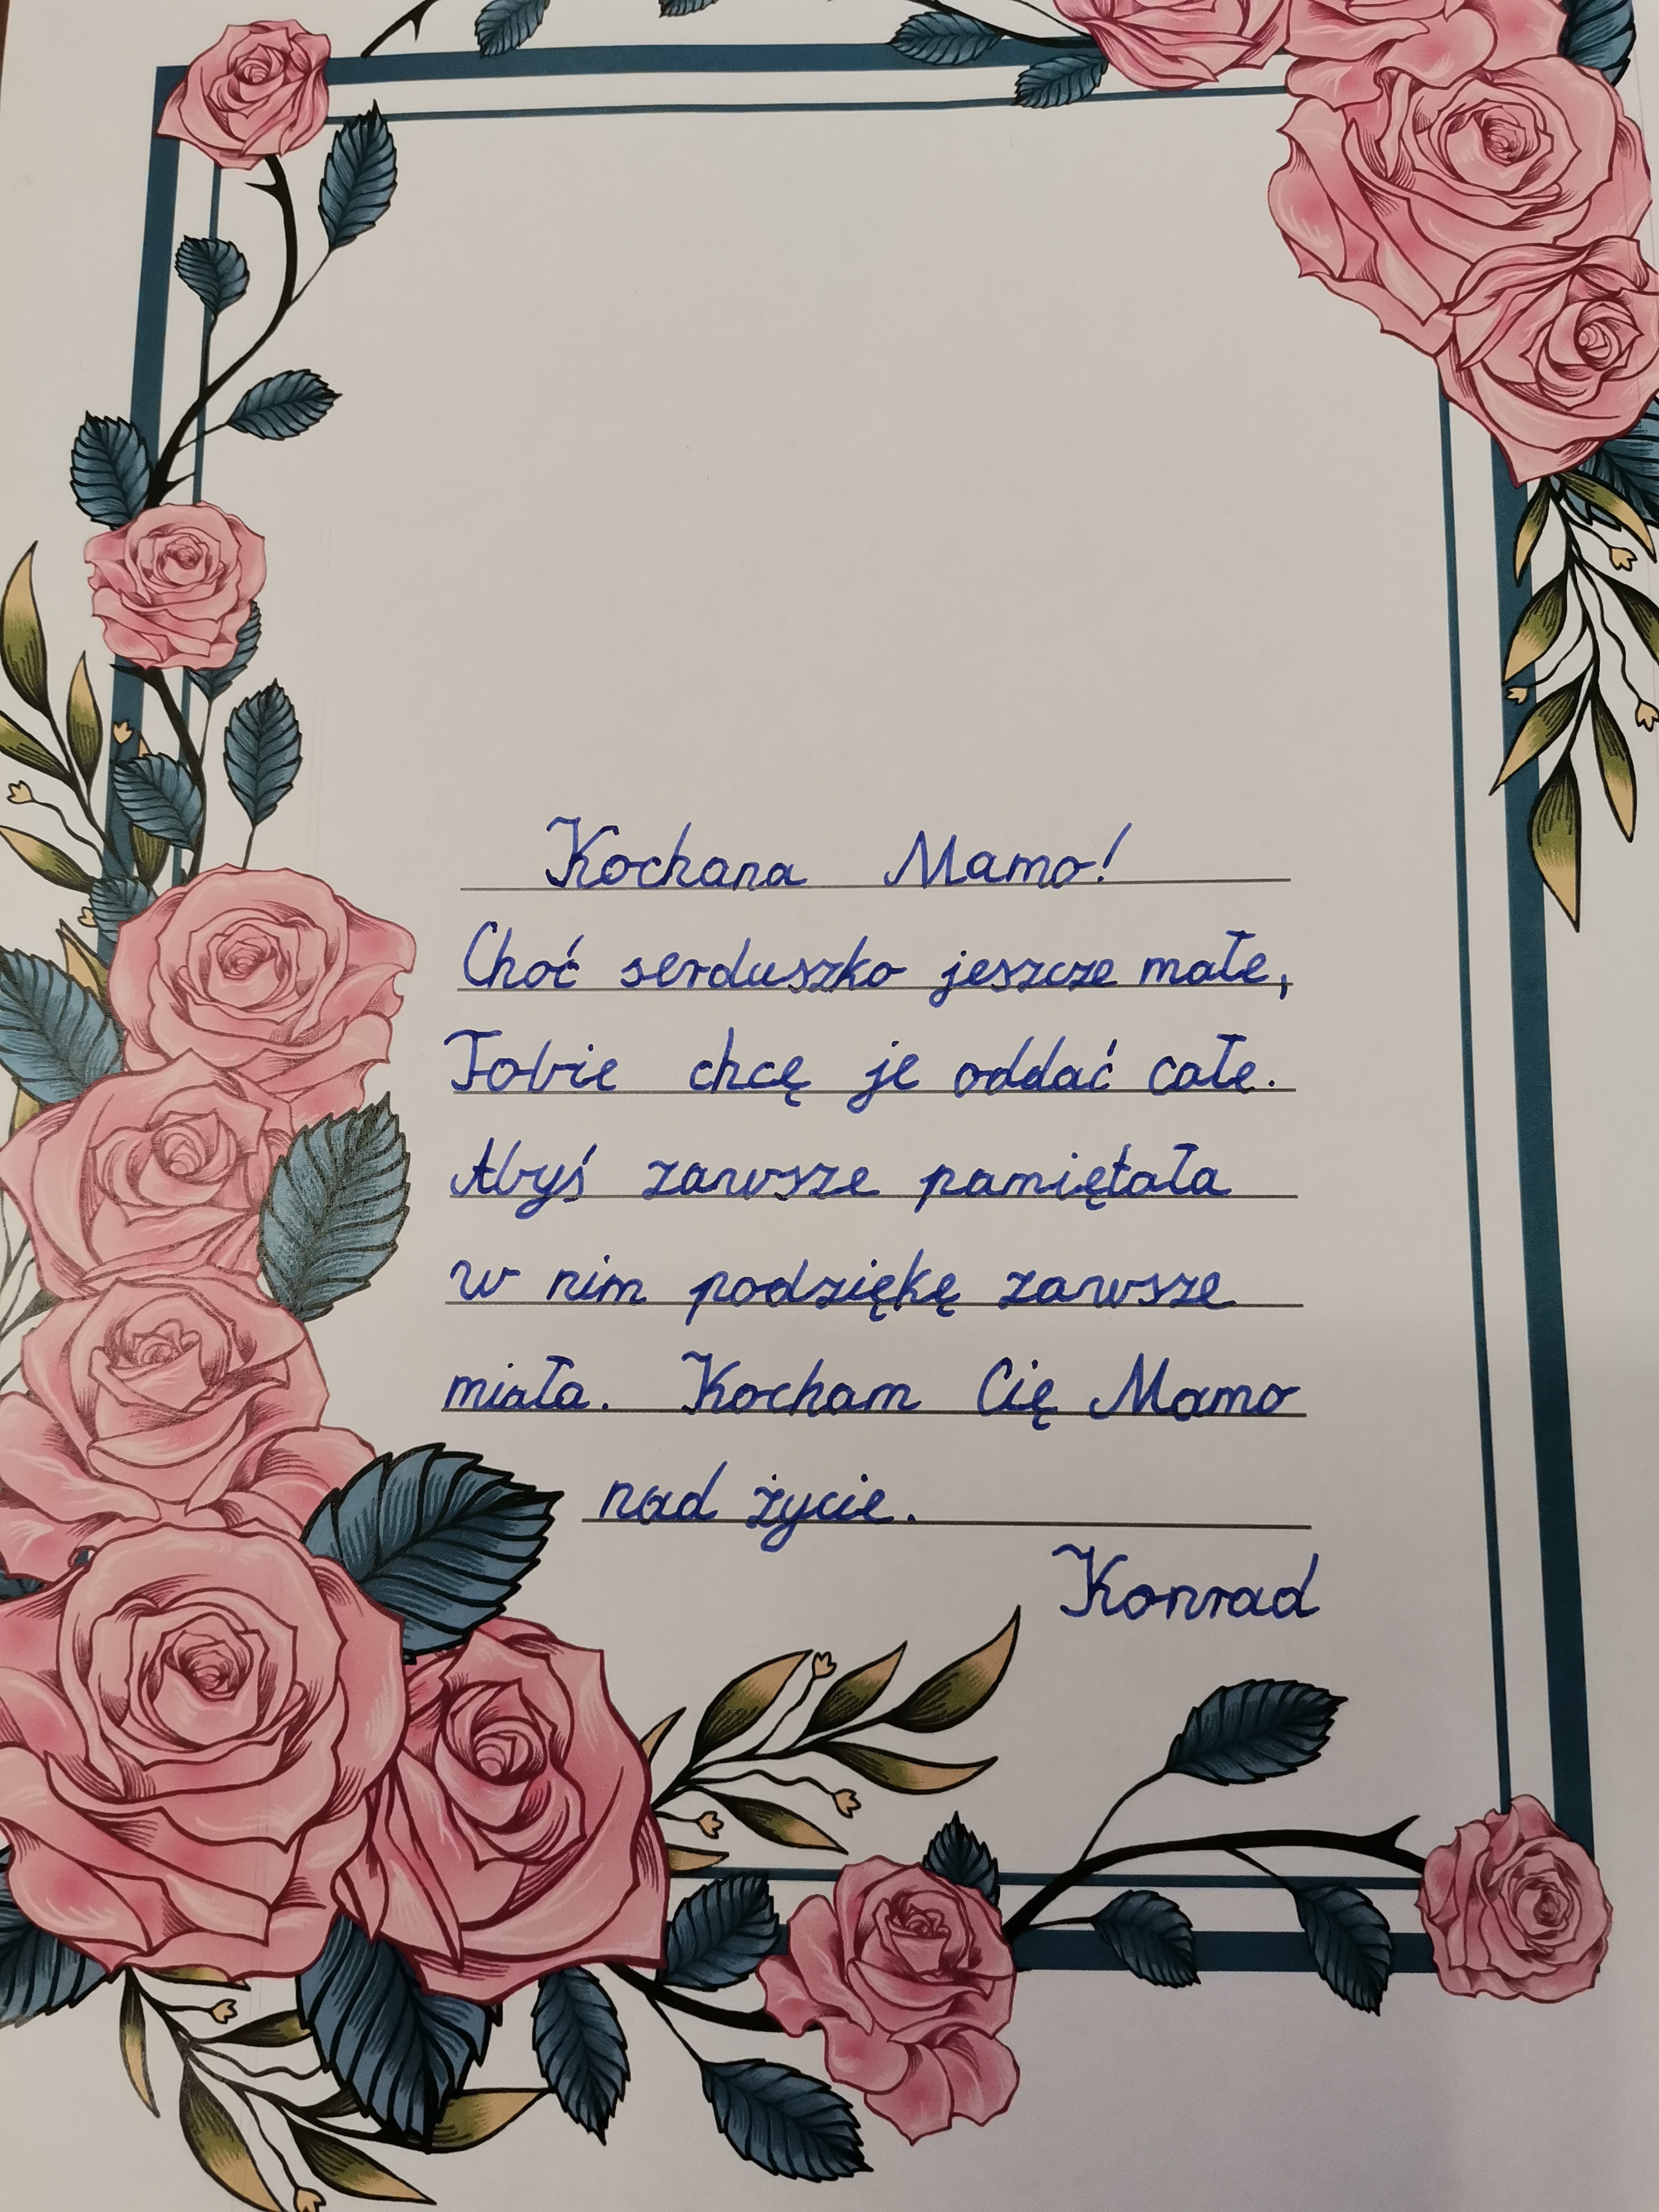 Kochana Mamo!
Choć serduszko jeszcze małe,
Tobie chcę je oddać całe.
Abyś zawsze pamiętała
w nim podziękę zawsze
miała. Kocham Cię Mamo
nad życie.
Konrad